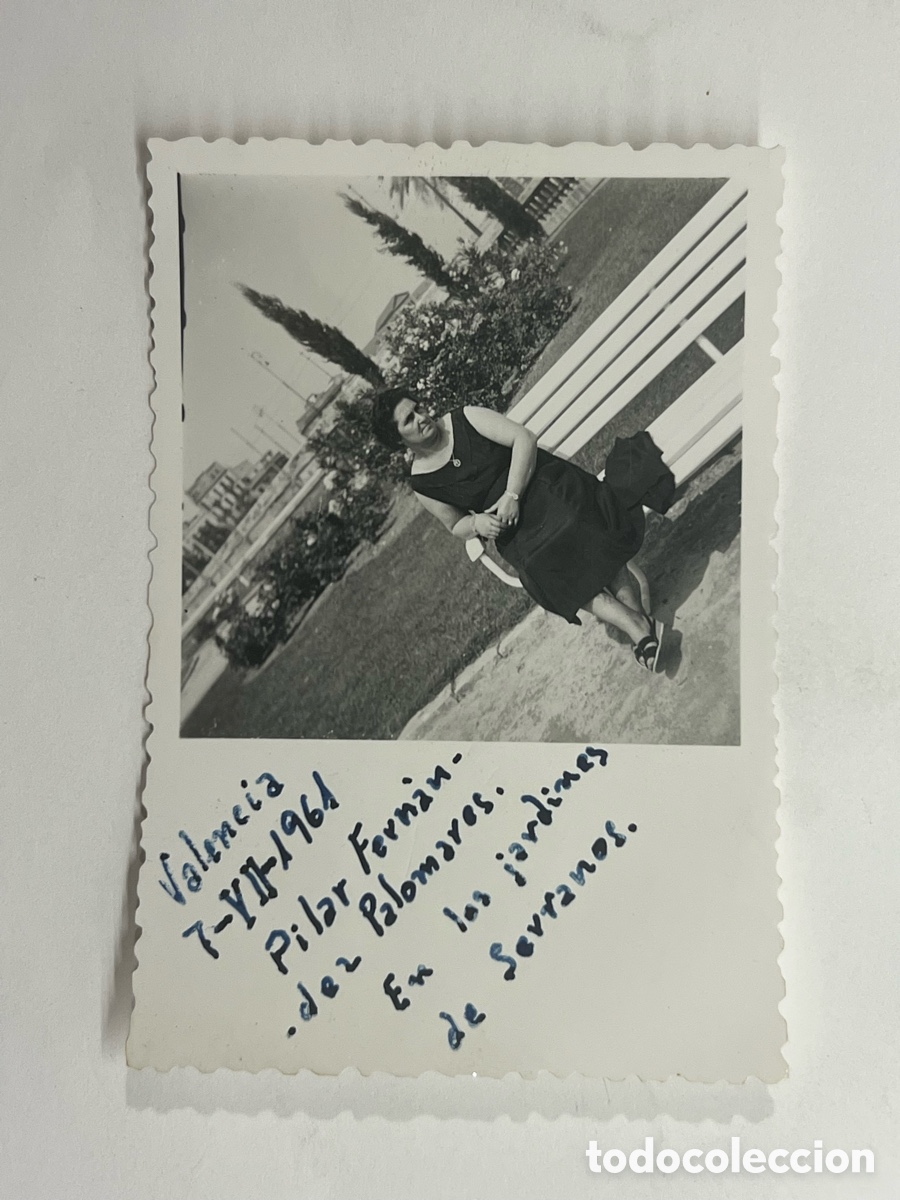 Valencia
7-VII-1961
Pilar Fernàn-
.dez Palomares.
En los jardines
de Serranos.
todocoleccion